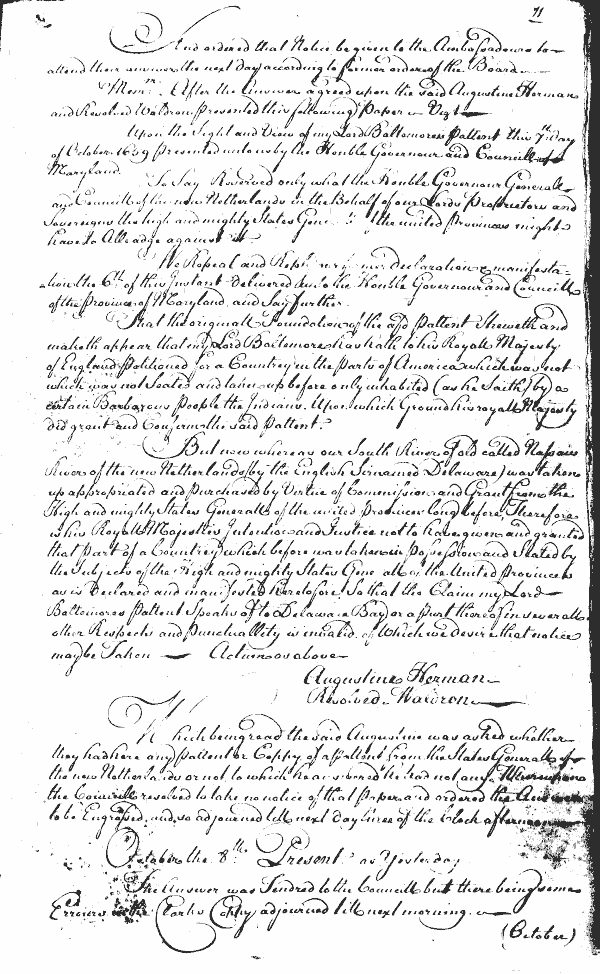 71
And ordered that Notice be given to the Ambassadours to
attend their answer the next day according to former order of the Board
Mem.<sup>m</sup> After the Answer agreed upon the said Augustine Herman
and Resolved Waldron presented this following Paper Vizt
Upon the Sight and View of my Lord Baltemores Pattent this 7th day
of October 1659 presented unto us by the Honble Governour and Councill of
Maryland
To Say Reserved only what the Honble Governour Generall
and Councill of the new Netherlands in the Behalf of our Lords Proprietors and
Sovereigns the high and mighty States Gene of the united provinces might
have to Alleadge against it
We Repeal and Reply our declaration & manifesta-
tion the 6th of this Instant delivered unto the Honble Governour and Councill
of the Province of Maryland and Say further
That the originall Foundation of the asd Pattent Sheweth and
maketh appear that my Lord Baltemore has hath to his Royall Majesty
of England Petitioned for a Countrey in the Parts of America which was not
which was not Seated and taken up before only inhabited (as he Saith) by a
certain Barbarous People the Indians. Upon which Ground his royall Majesty
did grant and Confirm the said Pattent.
But now whereas our South River of old called Nassaw
River of the new Netherlands (by the English Sirnamed Delaware) was taken
up appropriated and purchased by Virtue of Comission and Grant from the
High and mighty States Generalls of the united Provinces long before. Therefore
is his Royall Majesties Intention and Justice not to have given and granted
that part of a Countrey which before was taken in possession and Seated by
the Subjects of the High and mighty States Gene all of the United Provinces
as is Declared and manifested heretofore. So that the Claim my Lord
Baltemores Pattent Speaks of to Delaware Bay or a part thereof in severall
other Respects and punctuallity is invalid of Which we desire that notice
may be Taken Actum as above
Augustine Herman
Resolved Waldron
Which being read the said Augustine was asked whether
they had here any pattent or Coppy of a pattent from the States Generall or
the new Netherlands or not to which he answered he had not any Whereupon
the Councill resolved to take no notice of that Paper and ordered the Answer
to be Engrossed and so adjourned till next day three of the Clock afternoon
October the 8th Present as Yesterday
The Answer was Tendred to the Councill but there being some
Errours in the Clarks Coppy adjourned till next morning.
(October)